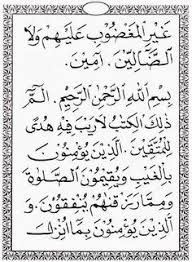 غَيْرِ الْمَغْضُوْبِ عَلَيْهِمْ وَلَا
الضَّآلِّيْنَ. آمِيْنَ.
بِسْمِ اللهِ الرَّحْمٰنِ الرَّحِيْمِ. الٓمّٓ
ذٰلِكَ الْكِتٰبُ لَا رَيْبَ فِيْهِ هُدًى
لِلْمُتَّقِيْنَ. الَّذِيْنَ يُؤْمِنُوْنَ
بِالْغَيْبِ وَيُقِيْمُوْنَ الصَّلَاةَ
وَمِمَّا رَزَقْنٰهُمْ يُنْفِقُوْنَ. وَ
الَّذِيْنَ يُؤْمِنُوْنَ بِمَا اُنْزِلَ